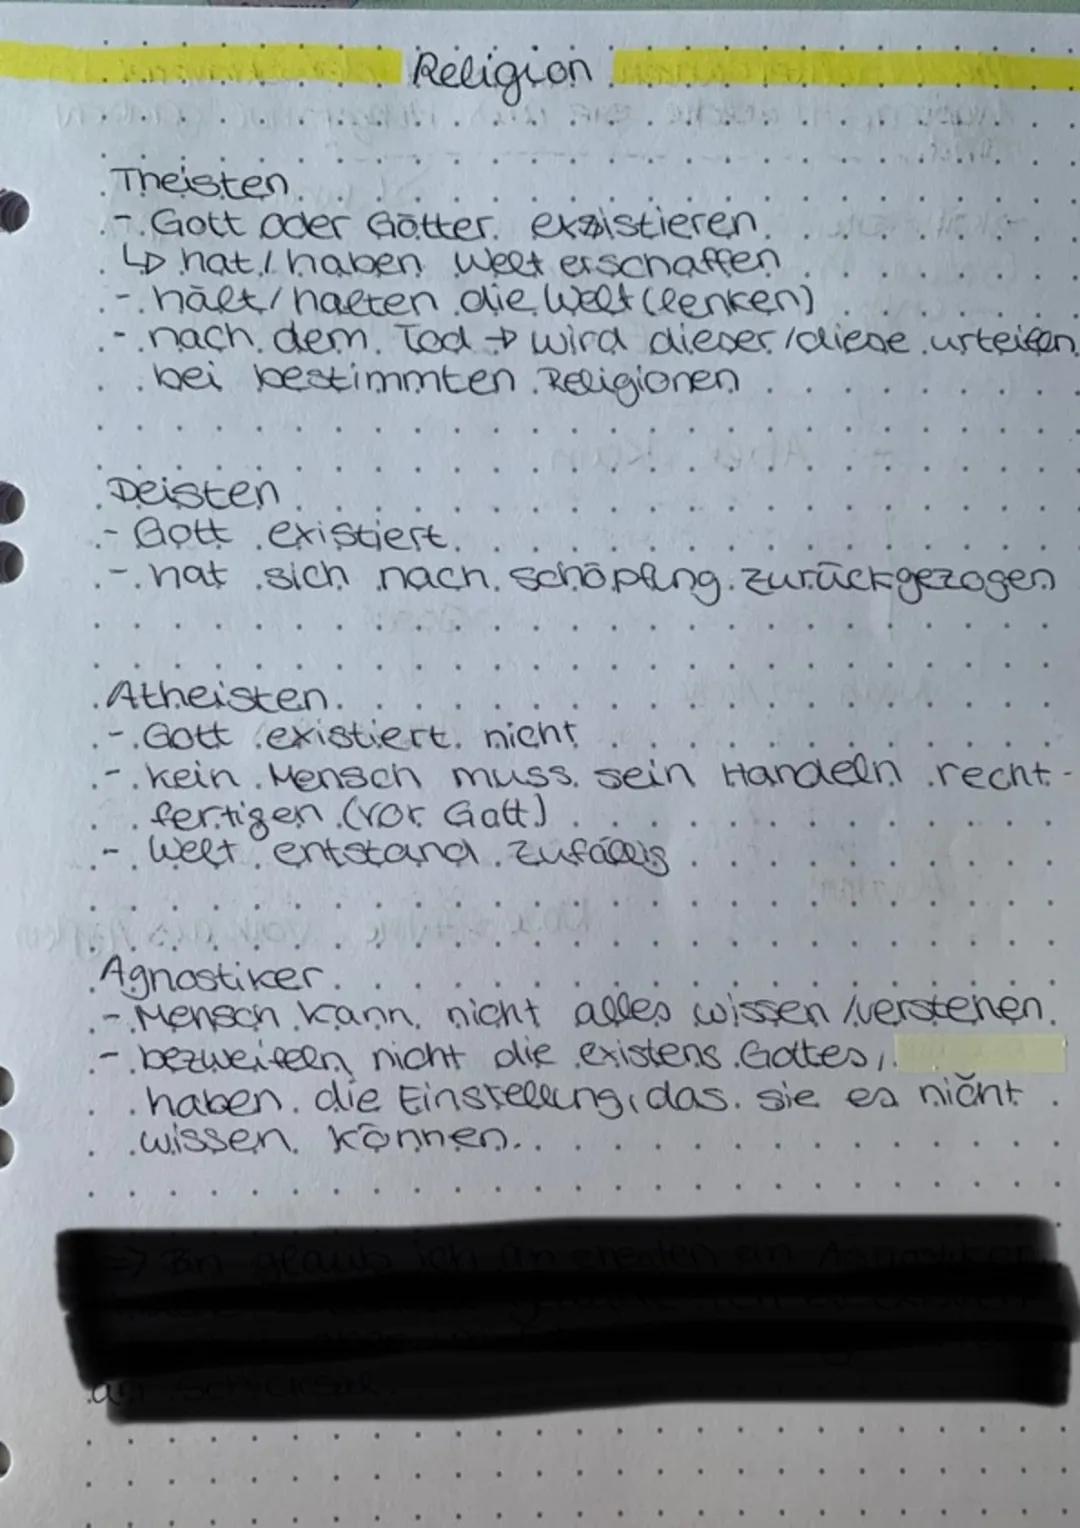 Religion
Theisten
- Gott oder Götter existieren
↳ hat / haben Welt erschaffen
- hält / halten die Welt (lenken)
- nach dem Tod → wird dieser / diese urteilen
bei bestimmten Religionen
Deisten
- Gott existiert
- hat sich nach Schöpfung zurückgezogen
Atheisten
- Gott existiert nicht
- kein Mensch muss sein Handeln recht-
fertigen (vor Gott)
- Welt entstand zufällig
Agnostiker
- Mensch kann nicht alles wissen / verstehen
- bezweifeln nicht die existens Gottes,
haben die Einstellung, das sie es nicht
wissen können.